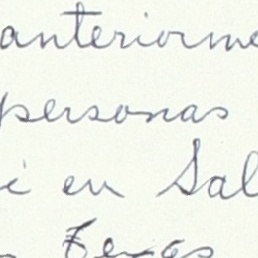 anteriorme
personas
i en Sal